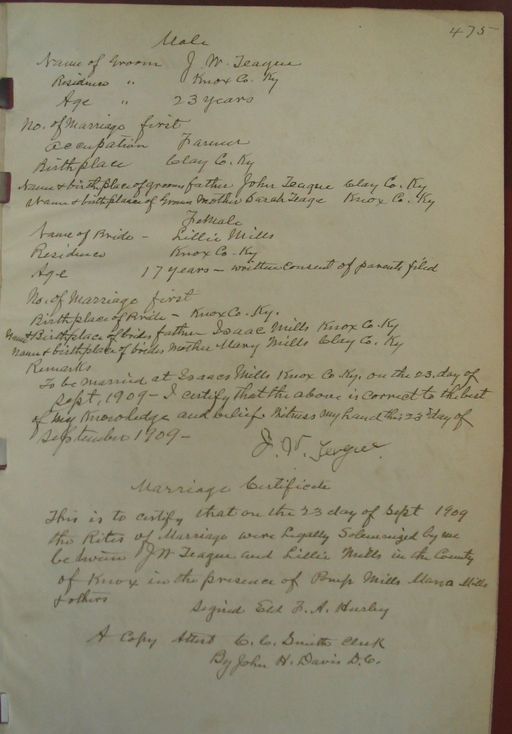 475
Male
Name of Groom J. W. Teague
Residence " Knox Co. Ky
Age " 23 years
No. of Marriage first
Occupation Farmer
Birthplace Clay Co. Ky
Name & birthplace of grooms father John Teague Clay Co. Ky
Name & birthplace of Grooms Mother Sarah Teage Knox Co. Ky
Female
Name of Bride - Lillie Mills
Residence Knox Co. Ky
Age 17 years - written consent of parents filed
No. of Marriage first
Birthplace of Bride - Knox Co. Ky.
Name & Birthplace of brides father Isaac Mills Knox Co. Ky
Name & birthplace of brides Mother Mary Mills Clay Co. Ky
Remarks
To be married at Isaacs Mills Knox Co. Ky. on the 23. day of
Sept, 1909 - I certify that the above is correct to the best
of my Knowledge and belief. Witness my hand this 23 day of
September 1909 -
J. W. Teague
Marriage Certificate
This is to certify that on the 23 day of Sept 1909
the Rites of Marriage were Legally Solemnized by me
between J W Teague and Lillie Mills in the County
of Knox in the presence of Mills Mills
& others
Signed Eld F. A. Hurley
A Copy Attest C. C. Smith Clerk
By John H. Davis D.C.